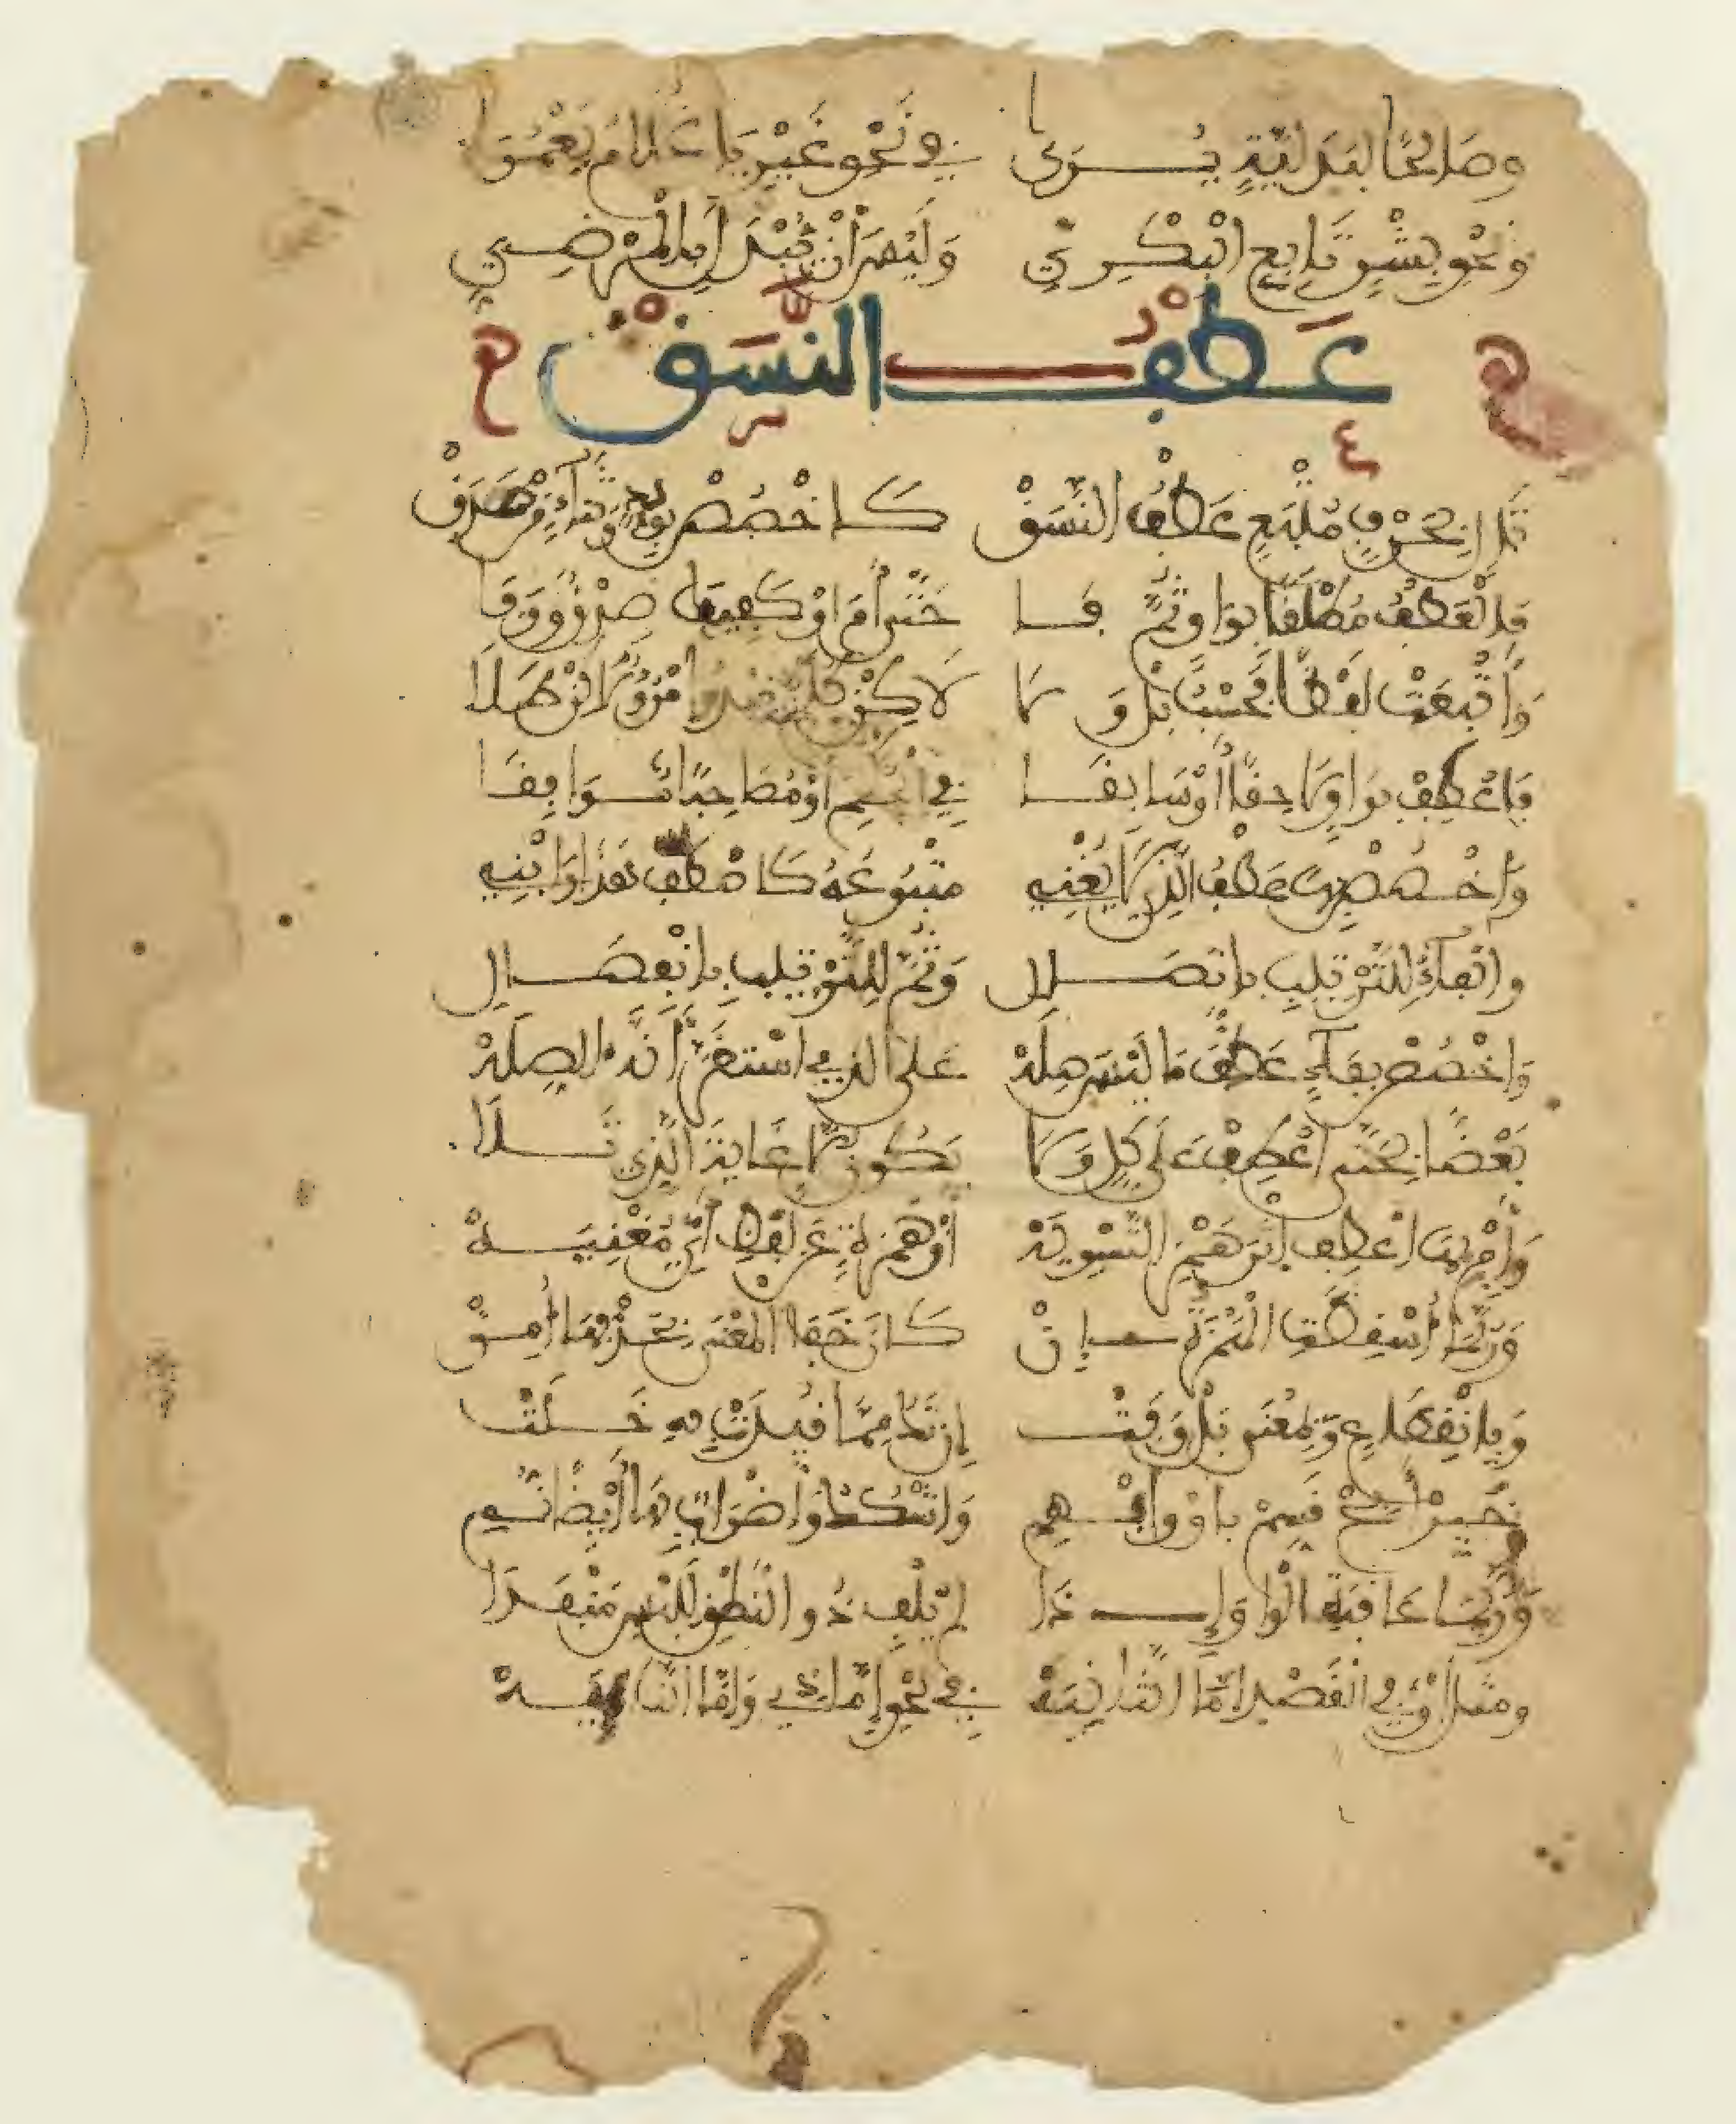 وصَالحًا لبَدَليَّةٍ يُرَى في نَحْوِ غَيْرِ يَا غُلَامُ يَعْمُرَا
وَنَحْوِ بِشْرٍ تَابِعِ الْبَكْرِيِّ وَلَيْسَ أَنْ يُبْدَلَ بِالْمَرْضِيِّ
عَطْفُ النَّسَقْ
تَالٍ بِحَرْفٍ مُتْبِعٍ عَطْفُ النَّسَقْ كَاخْصُصْ بِوُدٍّ وَثَنَاءٍ مَنْ صَدَقْ
فَالْعَطْفُ مُطْلَقًا بِوَاوٍ ثُمَّ فَا حَتَّى أَمَ اوْ كَفِيكَ صِدْقٌ وَوَفَا
وَأَتْبَعَتْ لَفْظًا فَحَسْبُ بَلْ وَلَا لَاكِنْ كَلَمْ يَبْدُ امْرُؤٌ لَاكِنْ طَلَا
فَاعْطِفْ بِوَاوٍ لَاحِقًا أَوْ سَابِقَا في الْحُكْمِ أَوْ مُصَاحِبًا مُوَافِقَا
وَاخْصُصْ بِهَا عَطْفَ الَّذِي لَا يُغْنِي مَتْبُوعُهُ كَاصْطَفَّ هَذَا وَابْنِي
وَالْفَاءُ لِلتَّرْتِيبِ بِاتِّصَالِ وَثُمَّ لِلتَّرْتِيبِ بِانْفِصَالِ
وَاخْصُصْ بِفَاءٍ عَطْفَ مَا لَيْسَ صِلَهْ عَلَى الَّذِي اسْتَقَرَّ أَنَّهُ الصِّلَهْ
بَعْضًا بِحَتَّى اعْطِفْ عَلَى كُلٍّ وَلَا يَكُونُ إِلَّا غَايَةَ الَّذِي تَلَا
وَأَمْ بِهَا اعْطِفْ إِثْرَ هَمْزِ التَّسْوِيَهْ أَوْ هَمْزَةٍ عَنْ لَفْظِ أَيٍّ مُغْنِيَهْ
وَرُبَّمَا أُسْقِطَتِ الْهَمْزَةُ إِنْ كَانَ خَفَا الْمَعْنَى بِحَذْفِهَا أُمِنْ
وَبِانْقِطَاعٍ وَبِمَعْنَى بَلْ وَفَتْ إِنْ تَكُ مِمَّا قُيِّدَتْ بِهِ خَلَتْ
خَيِّرْ أَبِحْ قَسِّمْ بِأَوْ وَأَبْهِمِ وَاشْكُكْ وَإِضْرَابٌ بِهَا أَيْضًا نُمِي
وَرُبَّمَا عَاقَبَتِ الْوَاوَ إِذَا لَمْ يُلْفِ ذُو النُّطْقِ لِلَبْسٍ مَنْفَذَا
وَمِثْلُ أَوْ في الْقَصْدِ إِمَّا الثَّانِيَهْ في نَحْوِ إِمَّا ذِي وَإِمَّا النَّائِيَهْ